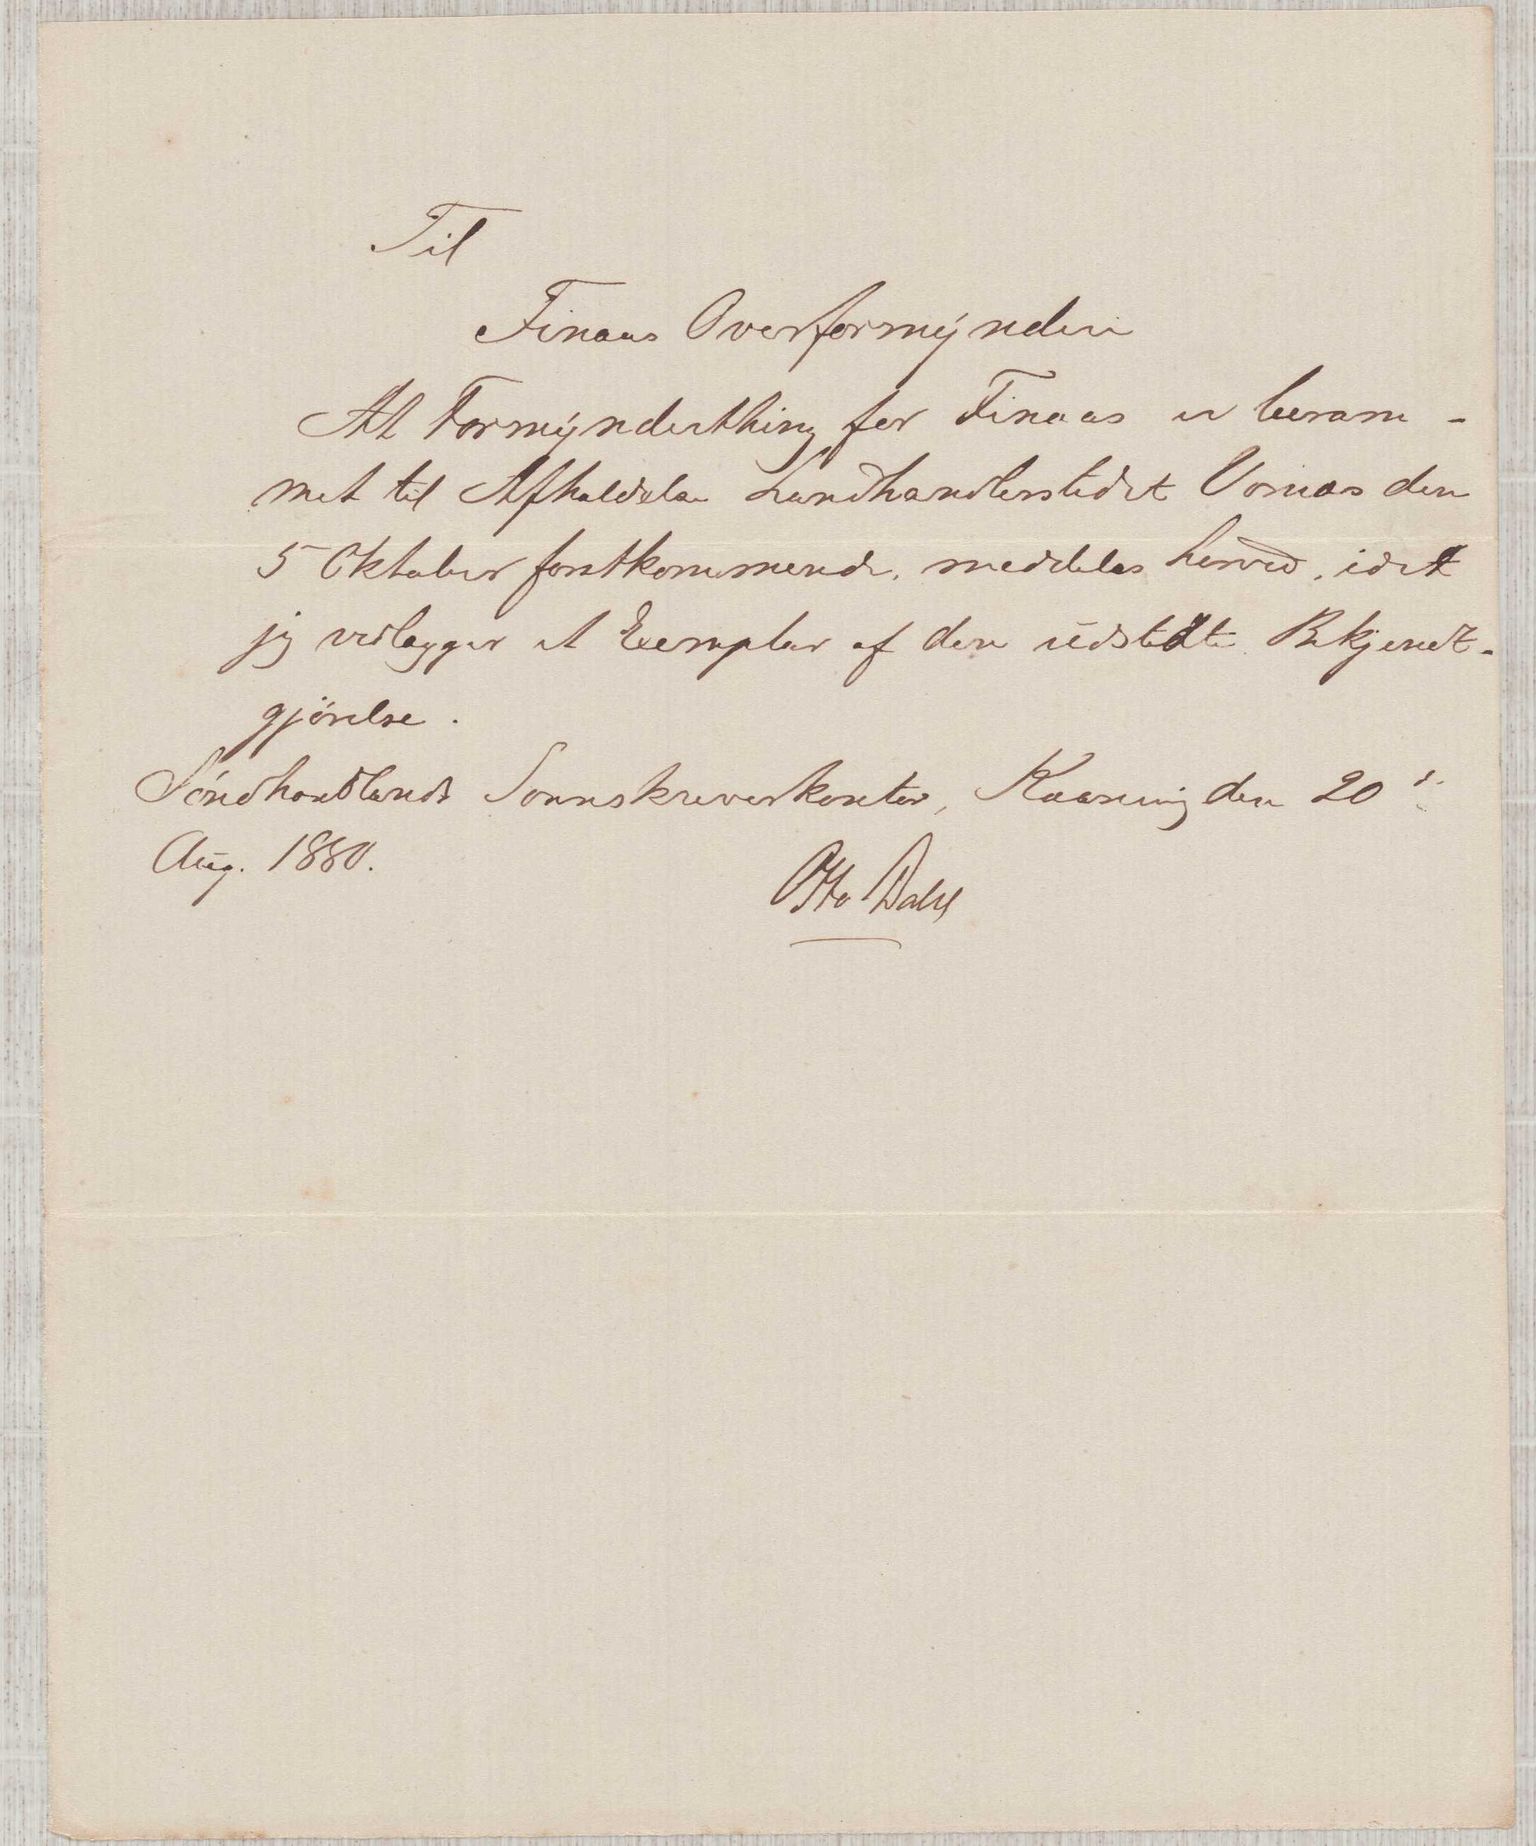 Til
Finaas Overformynderi
At Formynderthing for Finaas er beram-
met til Afholdelse Landhandlerstedet Vornæs den
5 Oktober førstkommende, meddeles herved, idet
jeg vedlægger et Exemplar af den udstedte Bekjendt-
gjørelse.
Søndhordlands Sorenskriverkontor, den 20de
Aug. 1880.
Otto Dahl